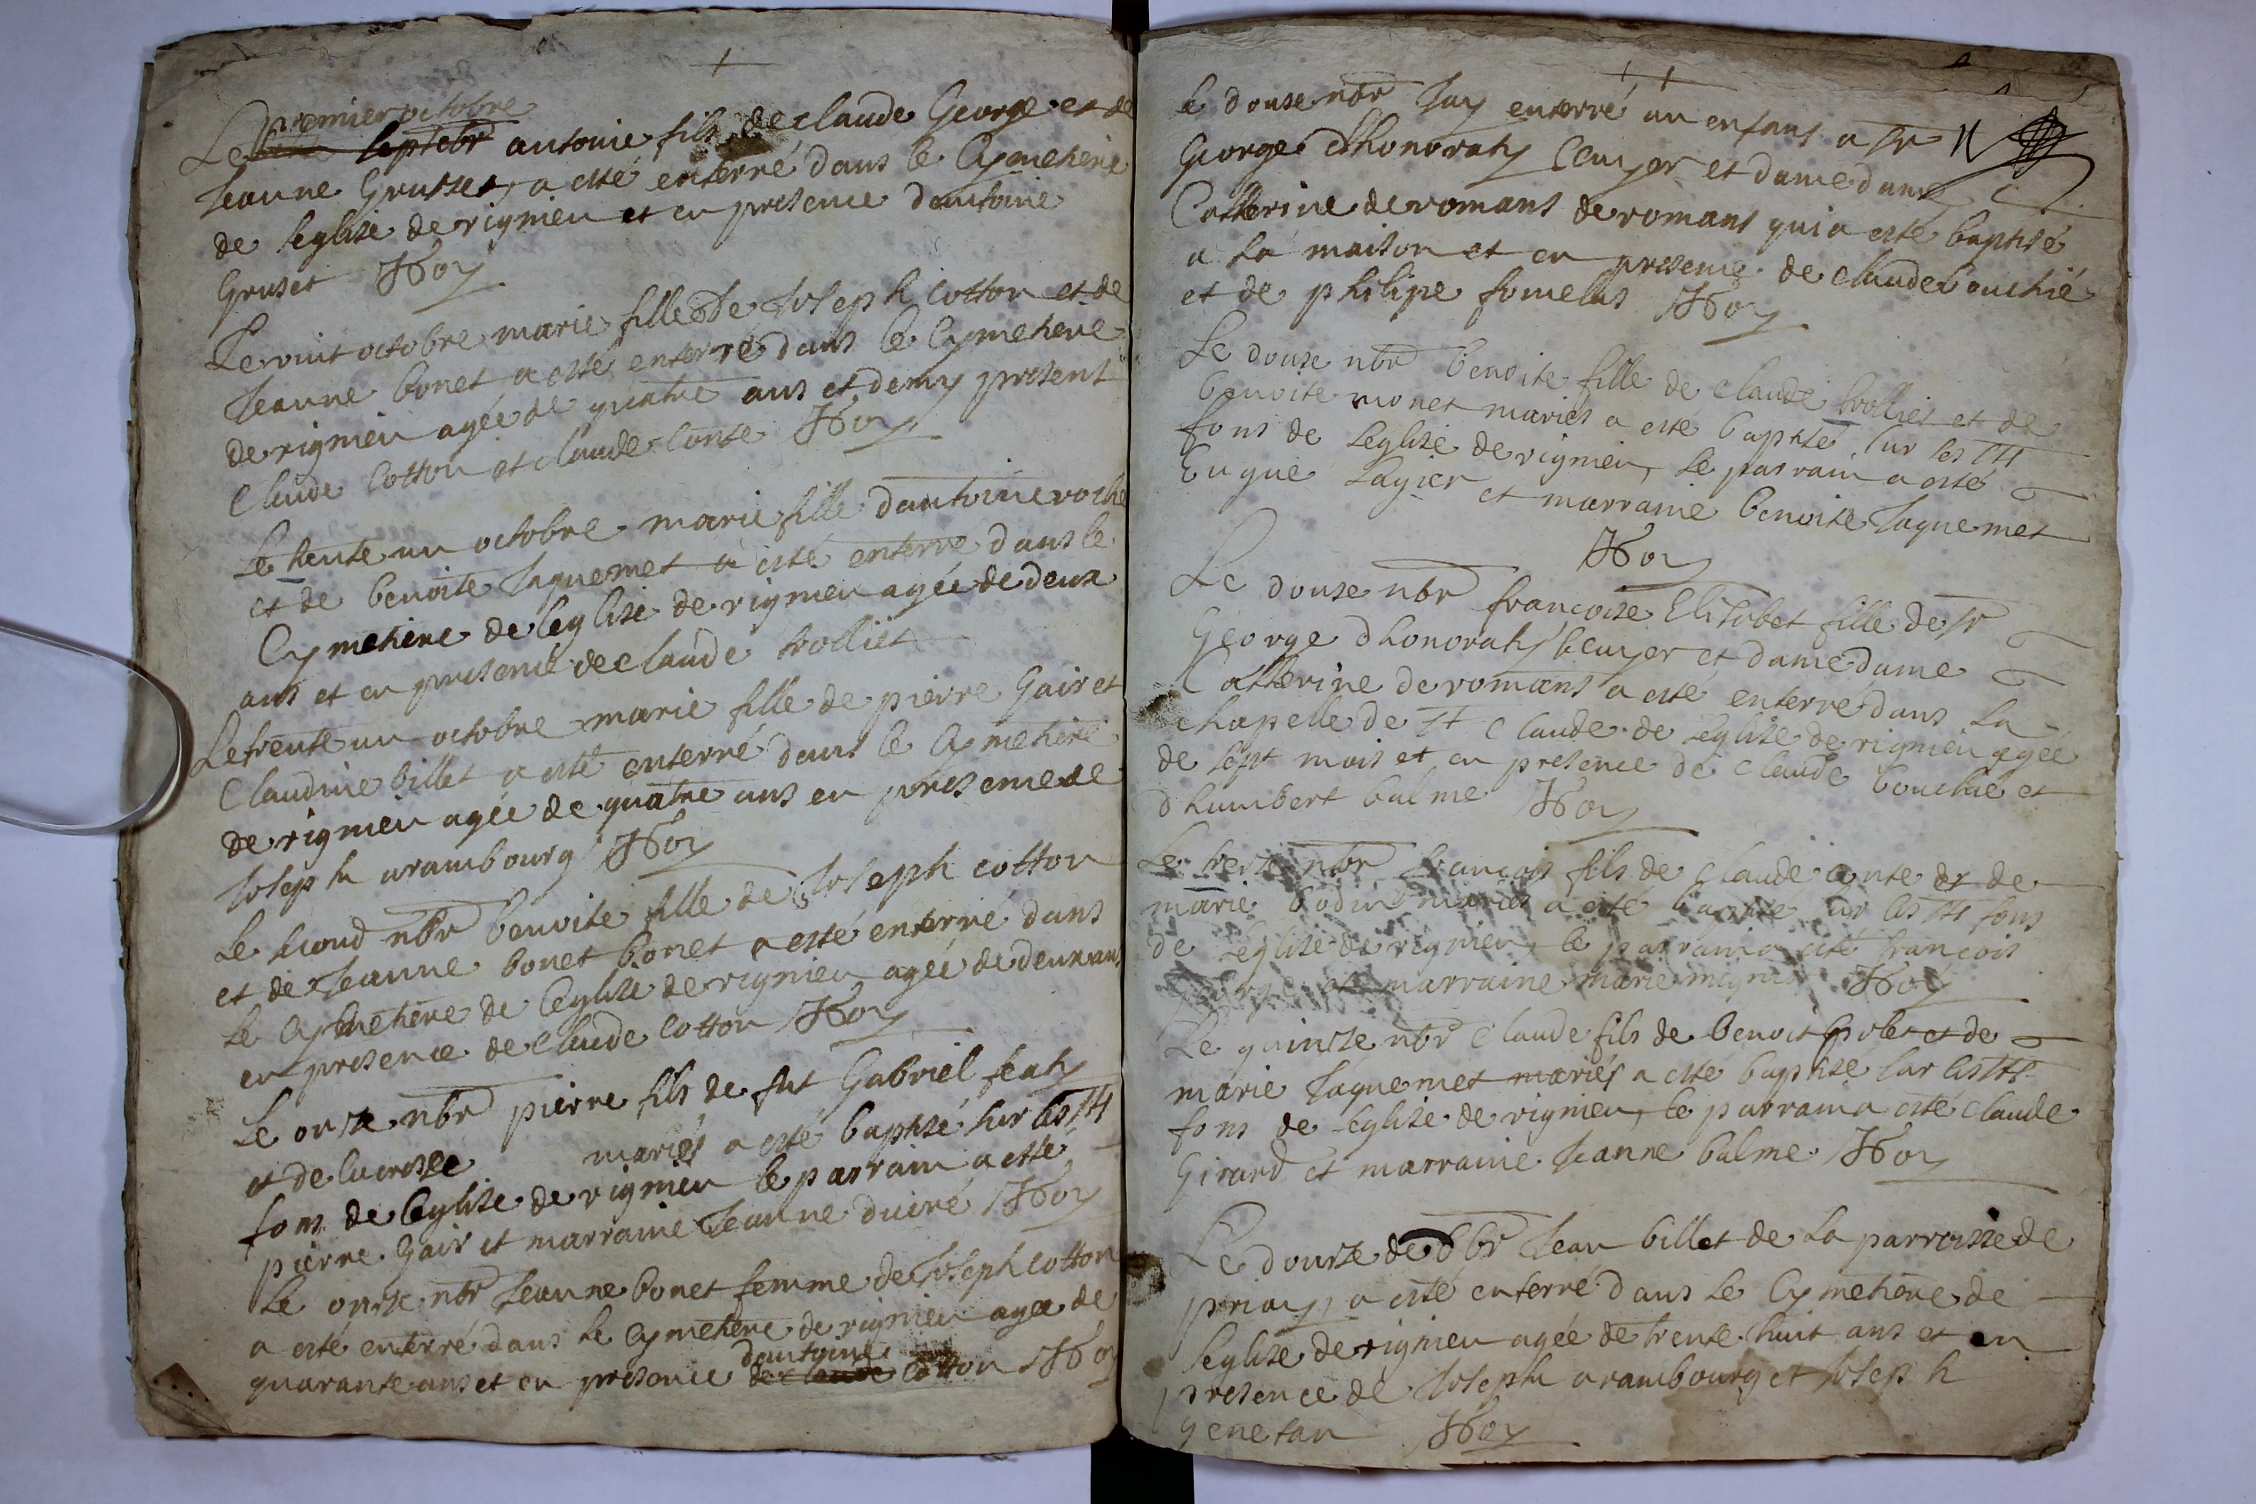 premier octobre
Le septebr antoine fils de claude George et de
Jeanne Grusset, a esté enterré dans le Cymetiere
de leglise de rignieu et en presence dantoine
Gruset
Le vint octobre marie fille de Joseph Cotton et de
Jeanne bonet a esté enterré dans le Cymetiere
de rignieu agée de quatre ans et demy present
Claude Cotton et claude Conte
Le trente un octobre marie fille dantoine roche
et de benoite Jaquemet a esté enterré dans le
Cymetiere de leglise de rignieu agée de deux
ans et en presence de claude trolliet
Le trente un octobre marie fille de pierre Gair et
Claudine billet a esté enterré dans le Cymetiere
de rignieu agée de quatre ans en presence de
Joseph arambourg
Le second nbr benoite fille de Joseph cotton
et de Jeanne bonet bonet a esté enterré dans
le Cymetiere de leglise de rignieu agée de deux ans
en presence de claude Cotton
Le onze nbr pierre fils de fut Gabriel
et de lucresse mariés a esté baptisé sur les
fons de leglise de rignieu le parrain a esté
pierre Gair et marraine Jeanne
Le onze nbr Jeanne bonet femme de Joseph Cotton
a esté enterré dans le Cymetiere de rignieu agée de
dantoine
quarante ans et en presence de claude Cotton
Le douse nbr Jay enterré un enfant a sr
George dhonoraty Ecuyer et dame dame
Catterine de romans de romans qui a esté baptisé
a la maison et en presence de claude bouchié
et de philipe
Le douse nbr benoite fille de claude trolliet et de
benoite monet mariés a esté baptisé sur les
fons de leglise de rignieu, le parrain a esté
Eugué Lagier et marraine benoite Jaquemet
Le douse nbr francoise Elisabet fille de sr
George dhonoraty Ecuyer et dame dame
Catterine de romans a esté enterré dans la
chapelle de st Claude de leglise de rignieu agée
de sept mois et en presence de claude bouchié et
dhumbert balme
Le treise nbr francois fils de claude conte et de
marie bodin mariés a esté baptisé sur les fons
de leglise de rignieu, le parrain a esté francois
et marraine marie
Le quinse nbr Claude fils de benoit et de
marie Jaquemet mariés a esté baptisé sur les
fons de leglise de rignieu, le parrain a esté claude
Girard et marraine Jeanne balme
Le douse de Jean billet de la parroisse de
priay, a esté enterré dans le Cymetiere de
leglise de rignieu agée de trente huit ans et en
presence de Joseph arambourg et Joseph
genetan